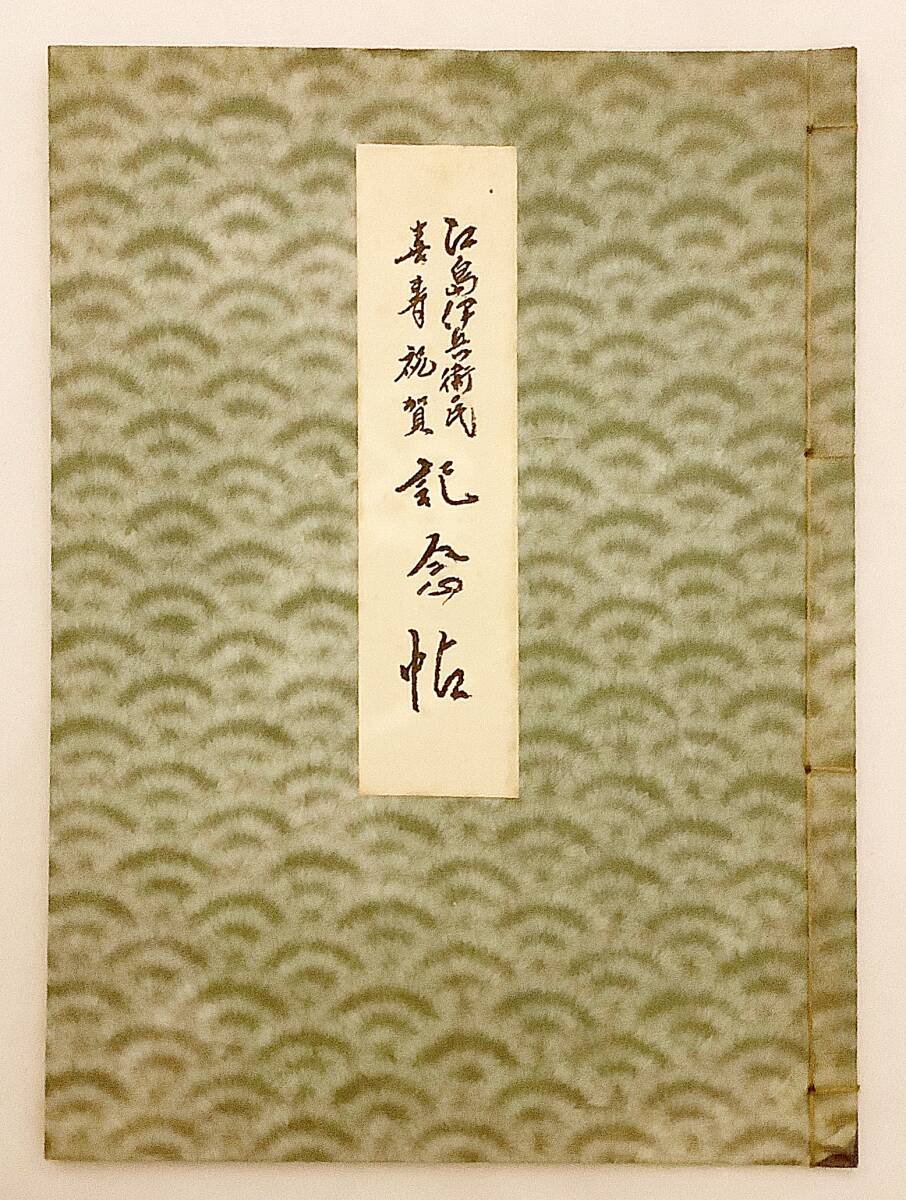 江島伊兵衛氏
喜寿祝賀
記念帖